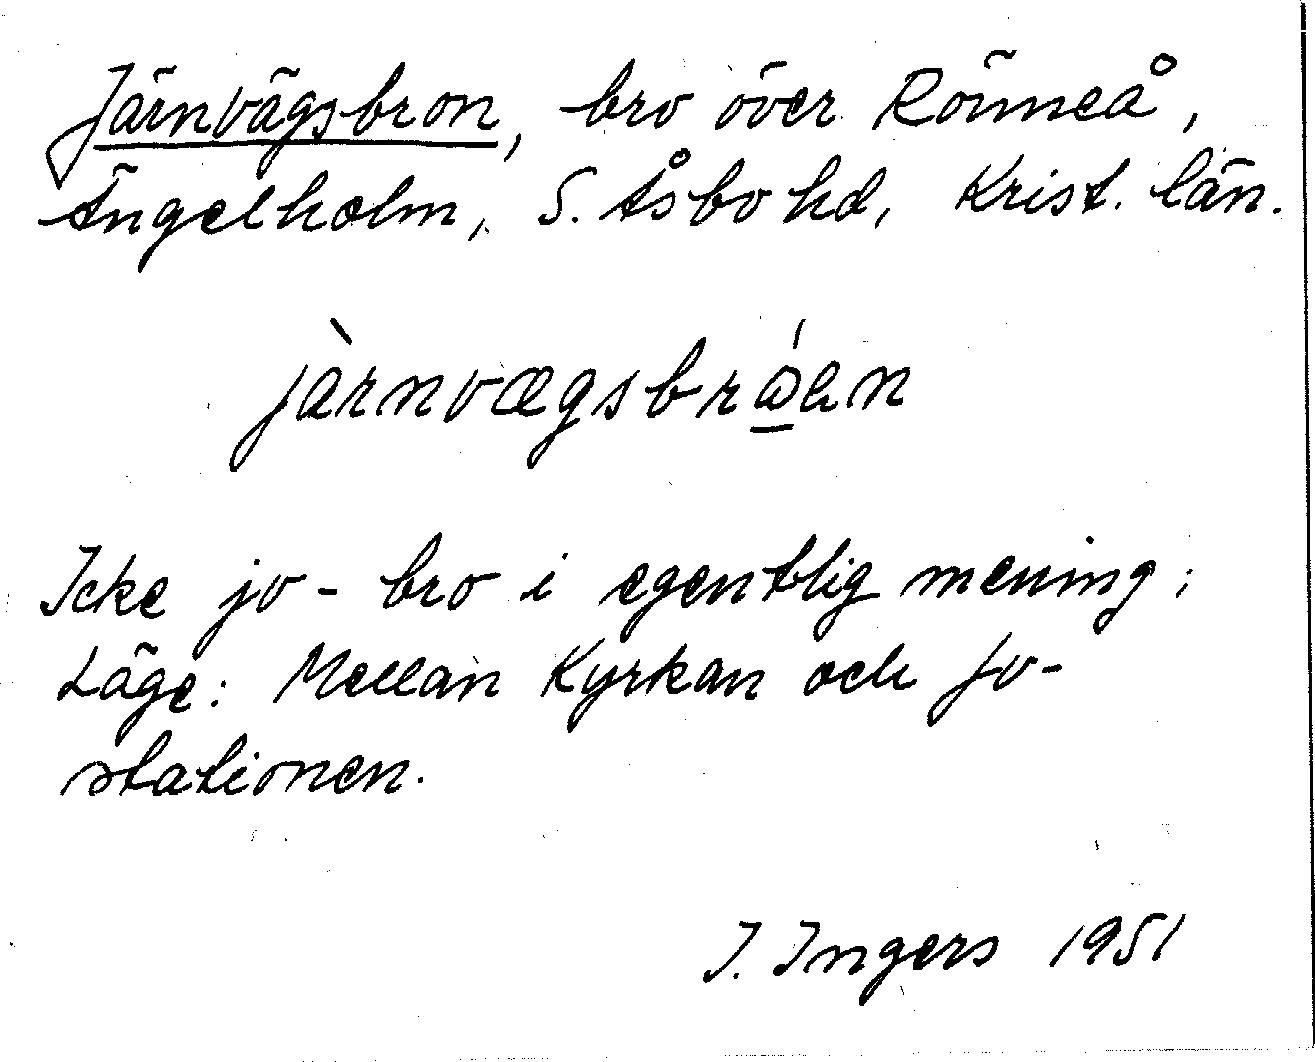 Järnvägsbron, bro över Rönneå,
Ängelholm, S. Åsbo hd, Krist. län.
jàrnvægsbrǻen
Icke jv-bro i egentlig mening;
Läge: Mellan Kyrkan och jv-
stationen.
I. Ingers 1951